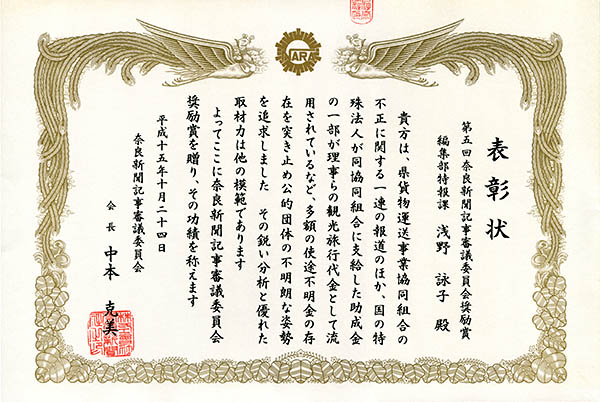 表彰状
第五回奈良新聞記事審議委員会奨励賞
編集部特報課 浅野 詠子 殿
貴方は、県貨物運送事業協同組合の
不正に関する一連の報道のほか、国の特
殊法人が同協同組合に支給した助成金
の一部が理事らの観光旅行代金として流
用されているなど、多額の使途不明金の存
在を突き止め公的団体の不明朗な姿勢
を追求しました その鋭い分析と優れた
取材力は他の模範であります
よってここに奈良新聞記事審議委員会
奨励賞を贈り、その功績を称えます
平成十五年十月二十四日
奈良新聞記事審議委員会
会長 中本 克美